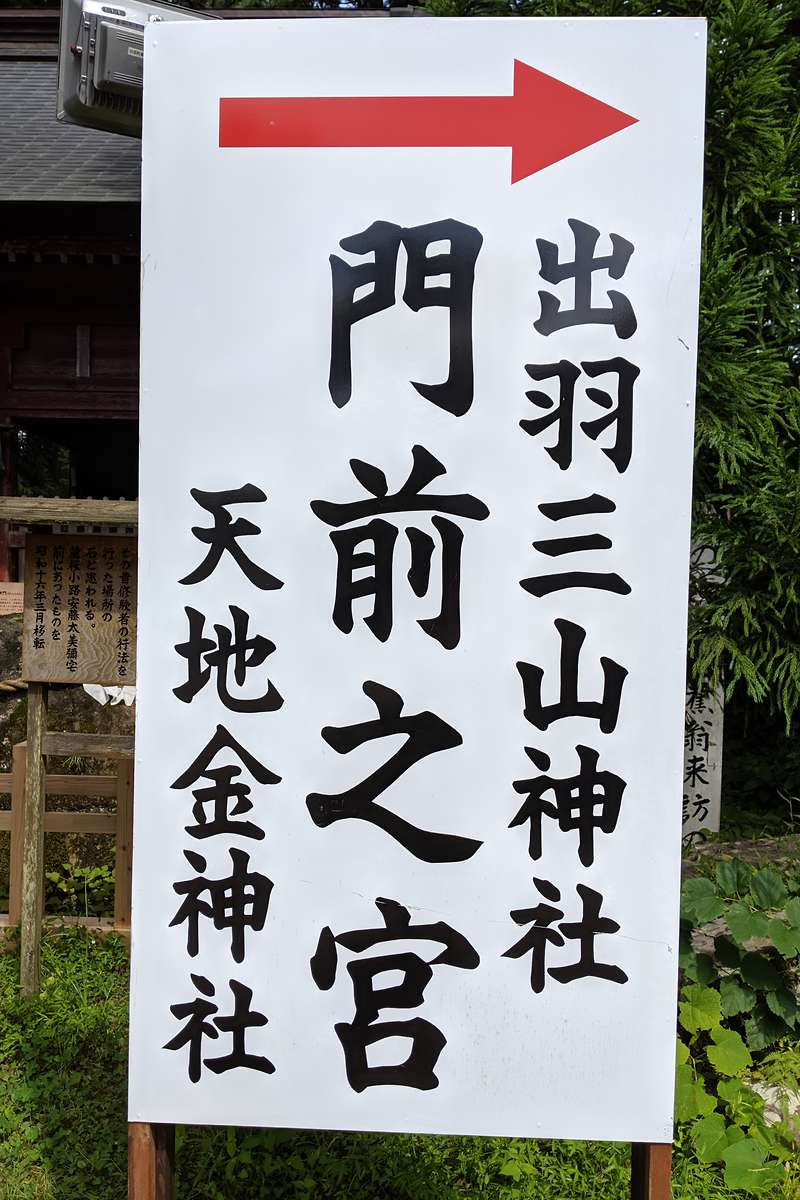 出羽三山神社
門前之宮
天地金神社
その昔修験者の行法を
行った場所の
石と思われる。
蔵桜小路安藤太美彌宅
前にあったものを
昭和十六年三月移転
翁来訪の